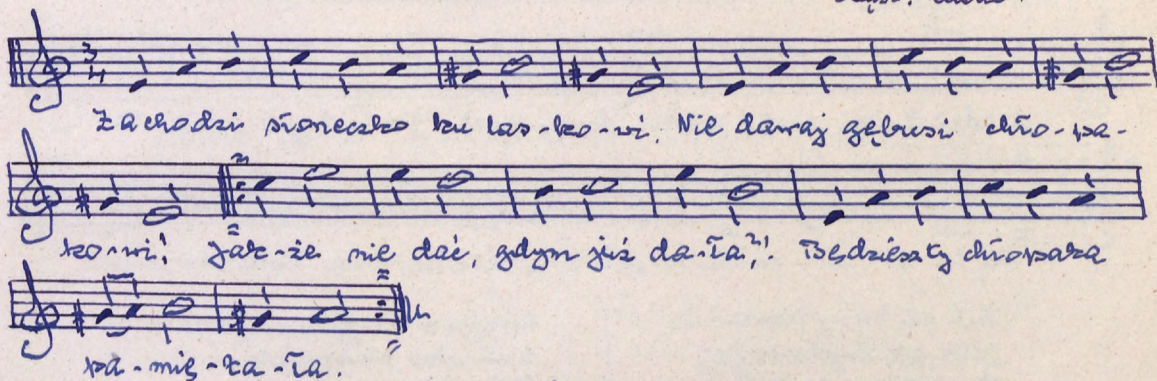 3/4
Zachodzi słoneczko ku las-ko-wi. Nie dawaj gębusi chło-pa-
ko-wi! Jak-że nie dać, gdym już da-ła?! Będzieszty chłopaka
pa-mię-ta-ła.